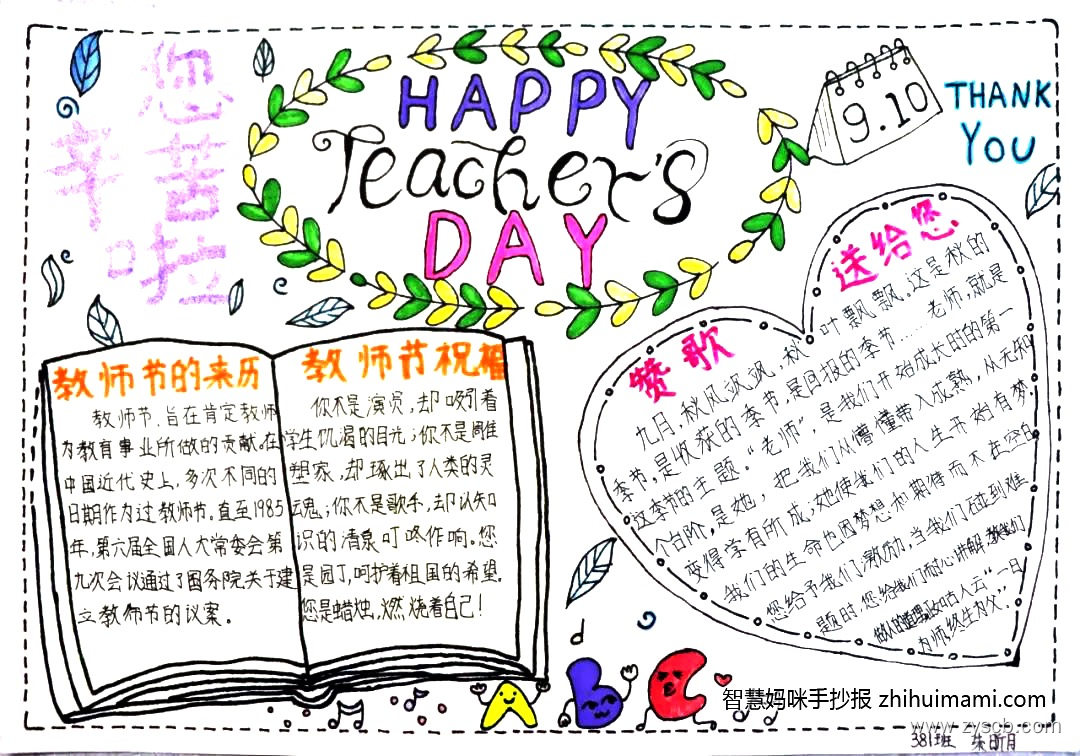 您
辛苦
啦
HAPPY
Teacher's
DAY
9.10
THANK
YOU
教师节的来历
教师节,旨在肯定教师
为教育事业所做的贡献。在
中国近代史上,多次不同的
日期作为过教师节。直至1985
年,第六届全国人大常委会第
九次会议通过了国务院关于建
立教师节的议案。
教师节祝福
你不是演员,却吸引着
学生饥渴的目光;你不是雕
塑家,却琢出了人类的灵
魂;你不是歌手,却以知
识的清泉叮咚作响。您
是园丁,呵护着祖国的希望。
您是蜡烛,燃烧着自己!
赞歌
送给您
九月,秋风飒飒,秋叶飘飘。这是秋的
季节,是收获的季节,是回报的季节……老师,就是
这季节的主题。“老师”,是我们开始成长时的第一
个台阶。是她,把我们从懵懂带入成熟,从无知
变得学有所成,她使我们的人生开始有梦。
我们的生命也因梦想和期待而不在空白
您给予我们激励,当我们碰到难
题时,您给我们耐心讲解,教我们
做人的道理,收古人云“一日
为师终生为父”。
A B C
智慧妈咪手抄报 zhihuimami.com
www.zyscb.com
381班 朱昕月